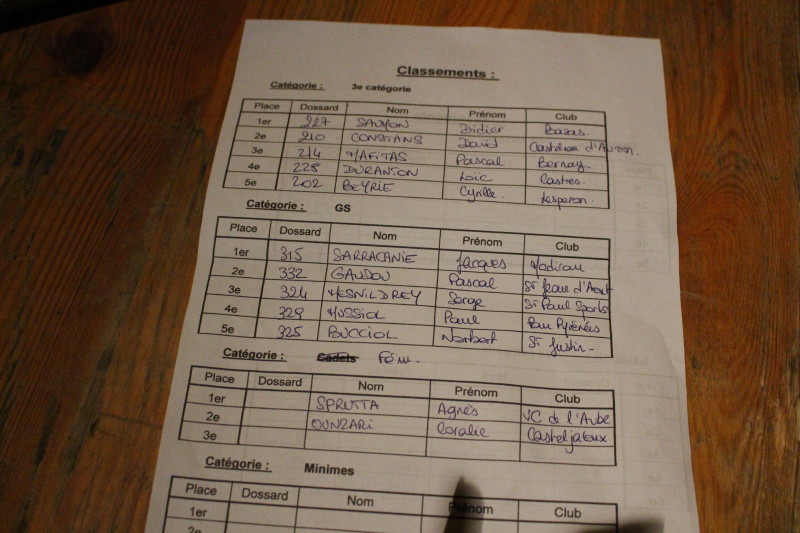 Classements :
Catégorie : 3e catégorie
Place Dossard Nom Prénom Club
1er 227 SAUYON Didier Bazas.
2e 210 CONSTANS David Castelnau d'Auzan.
3e 214 MAFITAS Pascal Bernay
4e 228 DURANTON Loic Castres.
5e 202 BEYRIE Cyrille. Lesperon.
Catégorie : GS
Place Dossard Nom Prénom Club
1er 315 SARRACANIE Jacques Madiran
2e 332 GAUDOU Pascal St Jean d'Août
3e 324 MESNILDREY Serge St Paul Sports
4e 329 MUSSIOL Paul Pau Pyrénées
5e 325 BUCCIOL Norbert St Justin -
Catégorie : Cadets Fém.
Place Dossard Nom Prénom Club
1er SPRUTTA Agnès VC de l'Aube
2e OUNZARI Coralie Casteljaloux
3e
Catégorie : Minimes
Place Dossard Nom Prénom Club
1er
2e